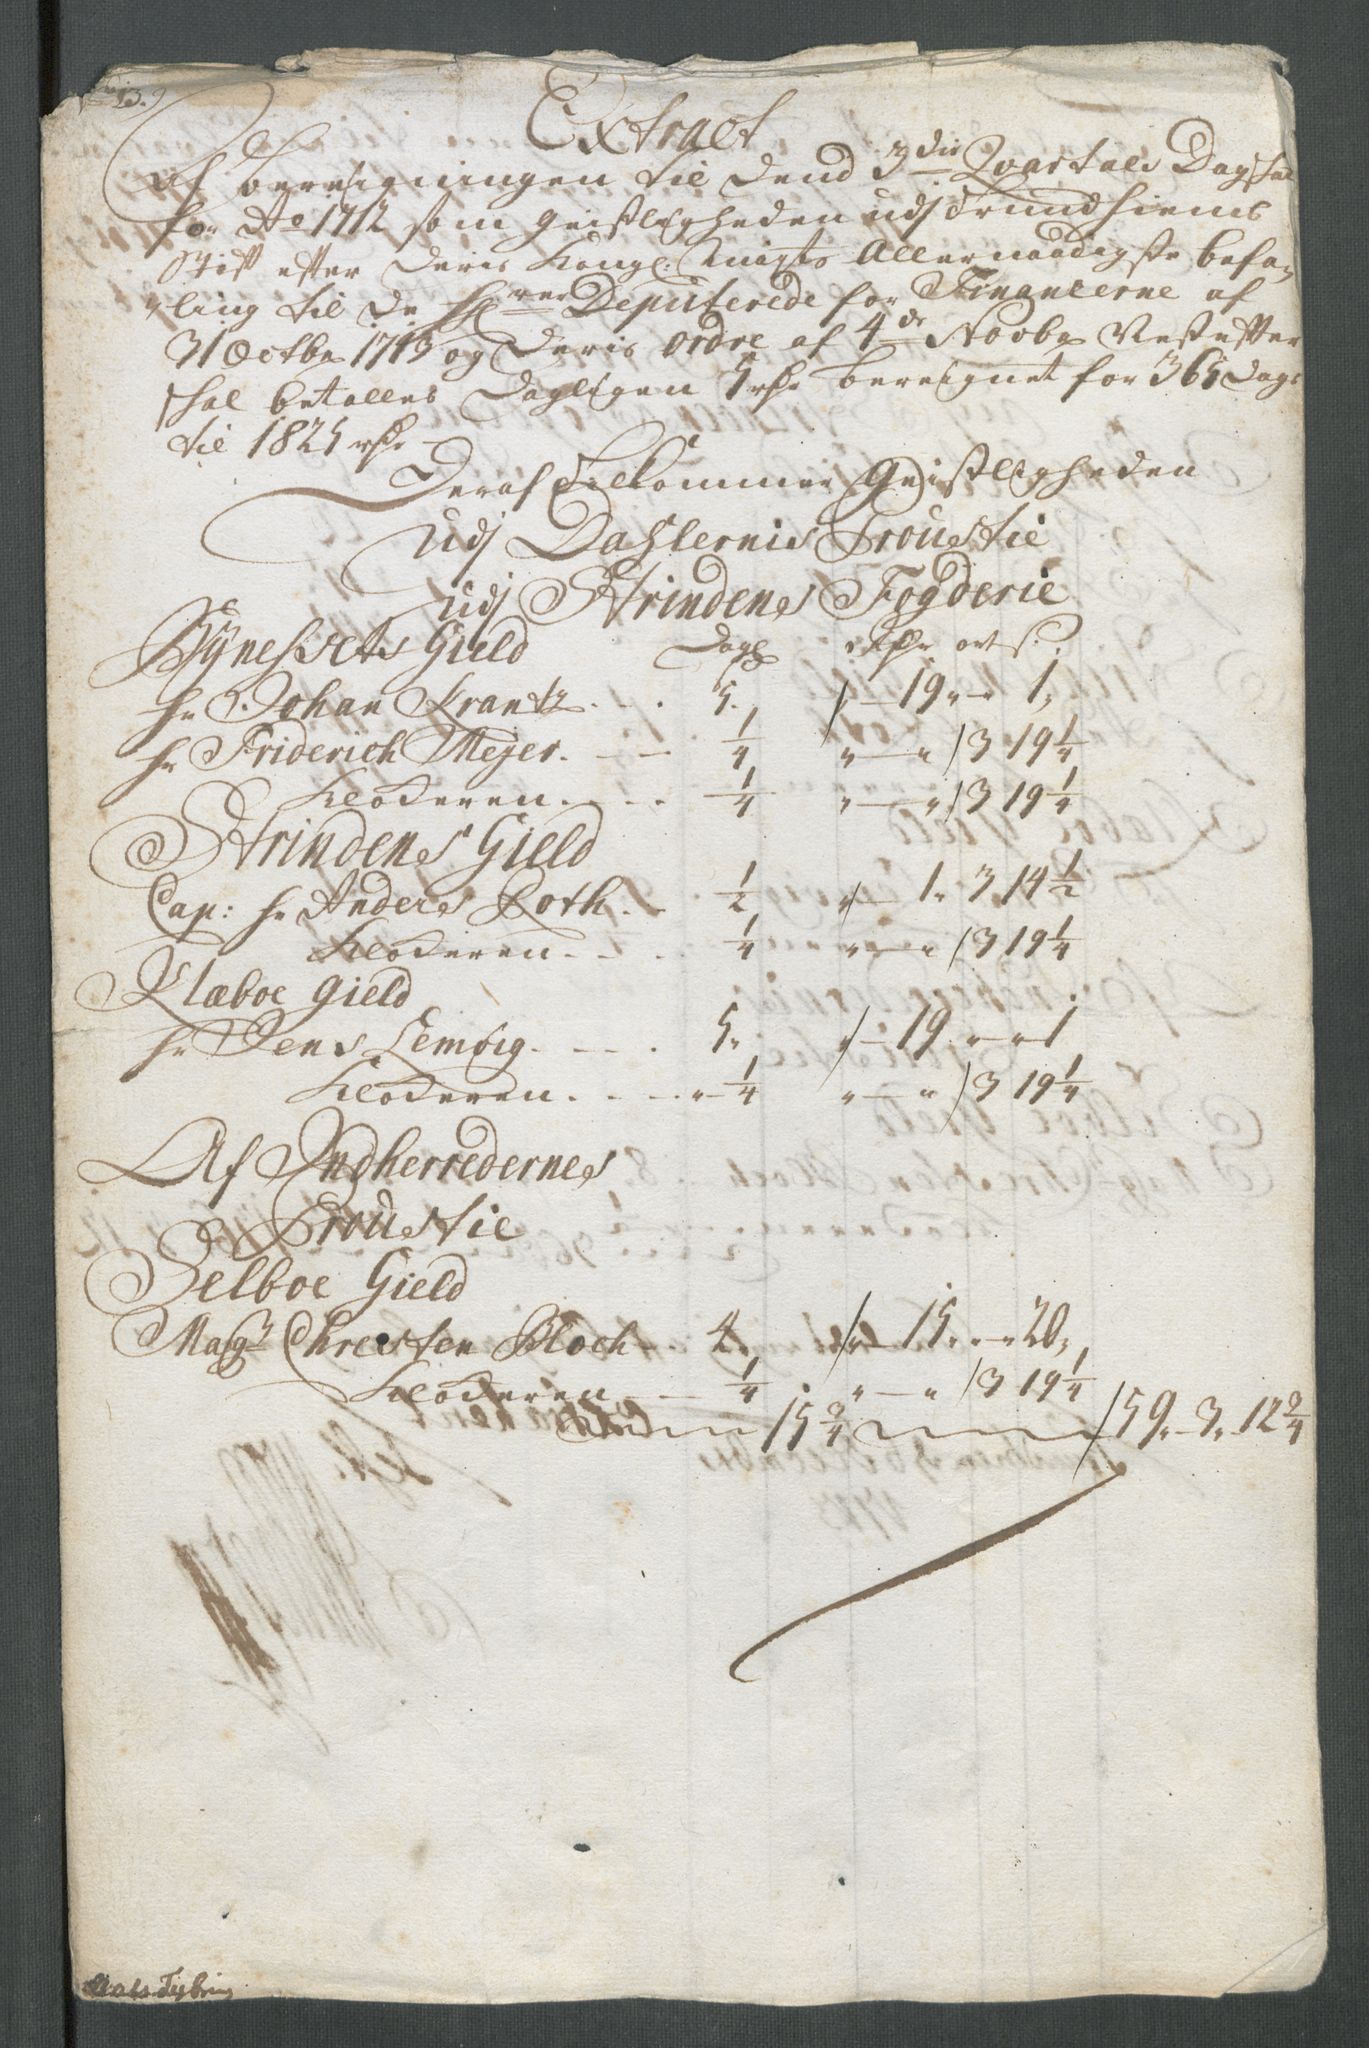 13.
Extract
af beregningen til dend 3die Qvartals Dagskat
for Ao 1712 som geistligheden udj Trundhiems
Stift efter deris Kongl: Mayts Allernaadigste befa-
ling til de Hrrer Deputerede for Financerne af
31 Octbr 1713 og deris ordre af 4de Novbr Nestefter
skal betalles dagligen 5 rdr beregnet for 365 dage
til 1825 rdr
Deraf tilkommer Geistligheden
udj Dahlernis Proustie
udj Strindens Fogderie
Bynessets Gield Dagl rdr ort s
hr Johan Krantz. 5. 19 „ 1.
hr Friderich Meyer. 1/4 „ „ 3 19 1/4
Klocheren. 1/4 „ „ 3 19 1/4
Strindens Gield
Cap: hr Anders Roth. 1/2 „ 1. 3 14 1/2
Klocheren. 1/4 „ „ 3 19 1/4
Klæboe Gield
hr Jens Lemvig. 5. „ 19 „ „ 1
Klocheren. 1/4 „ „ 3 19 1/4
Af Indherredernes
Proustie
Selboe Gield
Magr Christen Bloch. 4. „ 15. „ 20.
Klocheren 1/4 „ „ 3 19 1/4
15 3/4 59. 3. 12 3/4